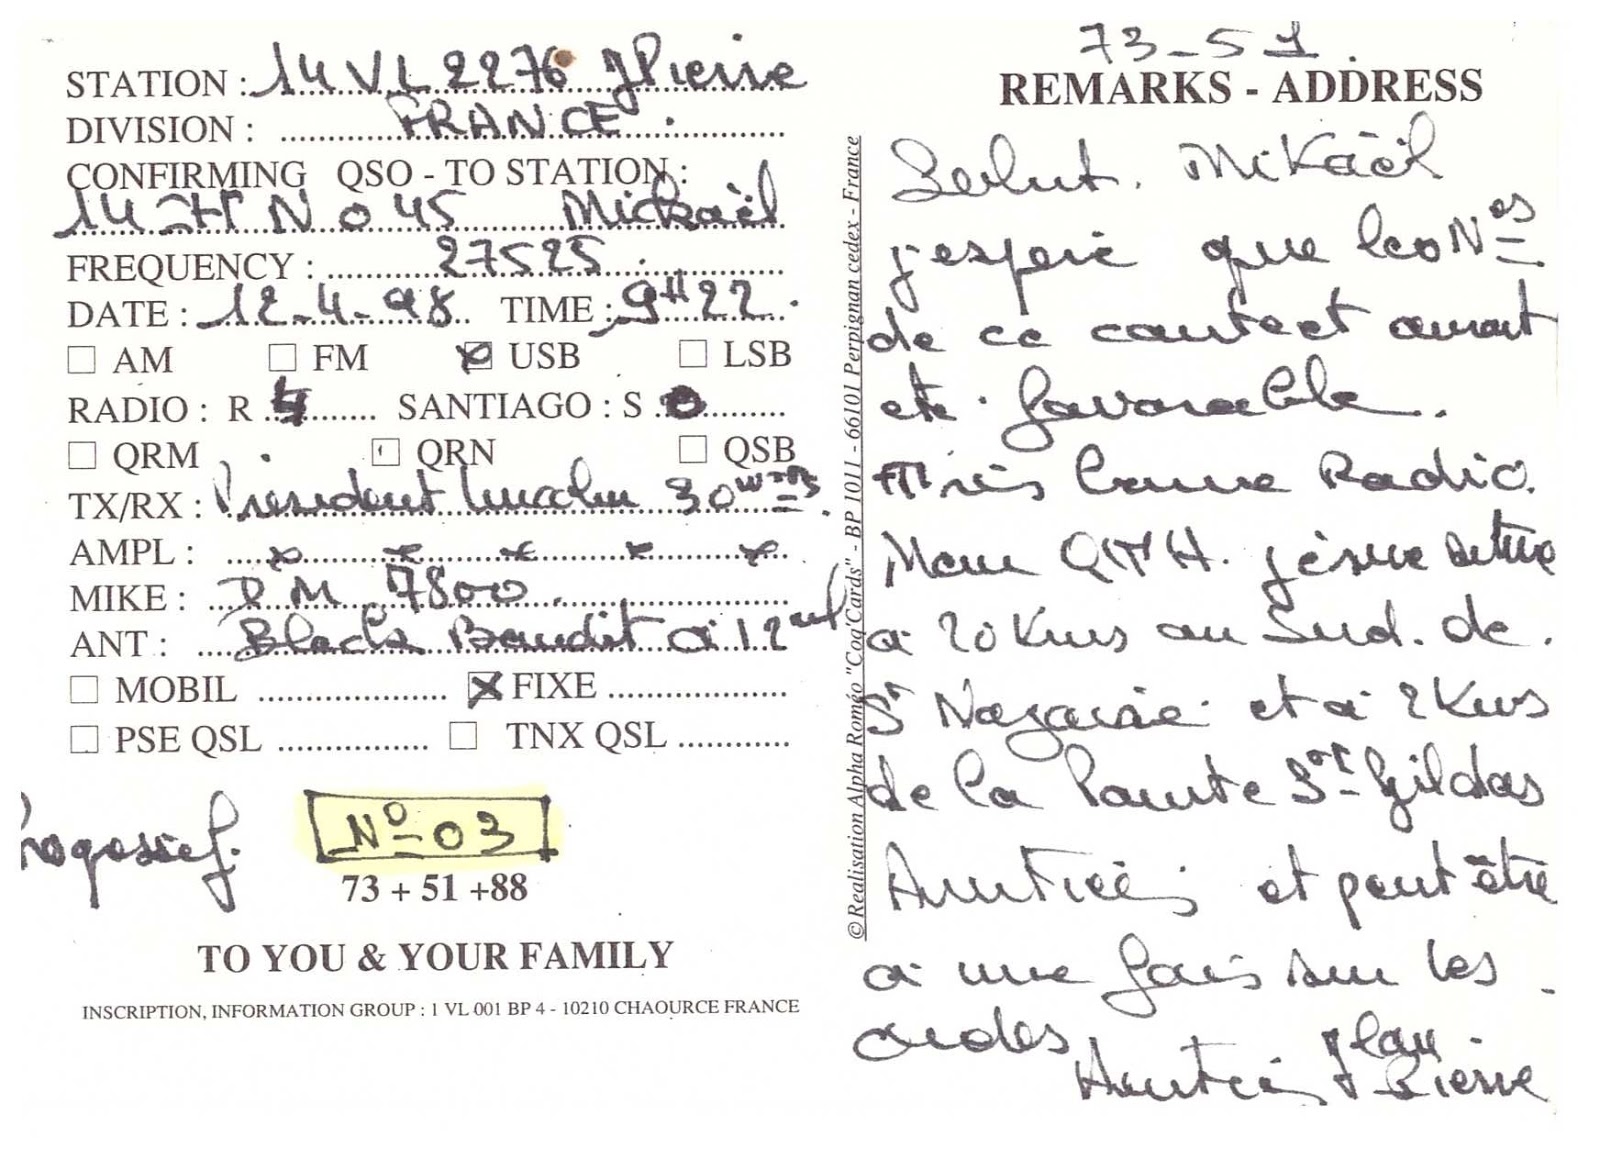 STATION : 14 VL 2276 JPierre
DIVISION : FRANCE
CONFIRMING QSO - TO STATION :
14 HN 045 Mickaël
FREQUENCY : 27525
DATE : 12-4-98 TIME : 9H22
AM FM USB LSB
RADIO : R 4 SANTIAGO : S 0
QRM QRN QSB
TX/RX : Président Lincoln 30 WTTS
AMPL :
MIKE : DM 7800
ANT : Black Bandit à 12 ml
MOBIL FIXE
PSE QSL TNX QSL
Progessif. N° 03
73 + 51 +88
TO YOU & YOUR FAMILY
INSCRIPTION, INFORMATION GROUP : 1 VL 001 BP 4 - 10210 CHAOURCE FRANCE
©Realisation Alpha Roméo "Coq'Cards" - BP 1011 - 66101 Perpignan cedex - France
73-51.
REMARKS - ADDRESS
Salut. Mikaël
j'espère que les Nes
de ce contact auront
été favorable.
Très bonne Radio.
Mon QTH. se situe
à 20 Kms au Sud. de.
St Nazaire et à 2 Kms
de la Pointe St Gildas
Amitiés et peut être
à une fois sur les
ondes
Amitiés Jean
Pierre